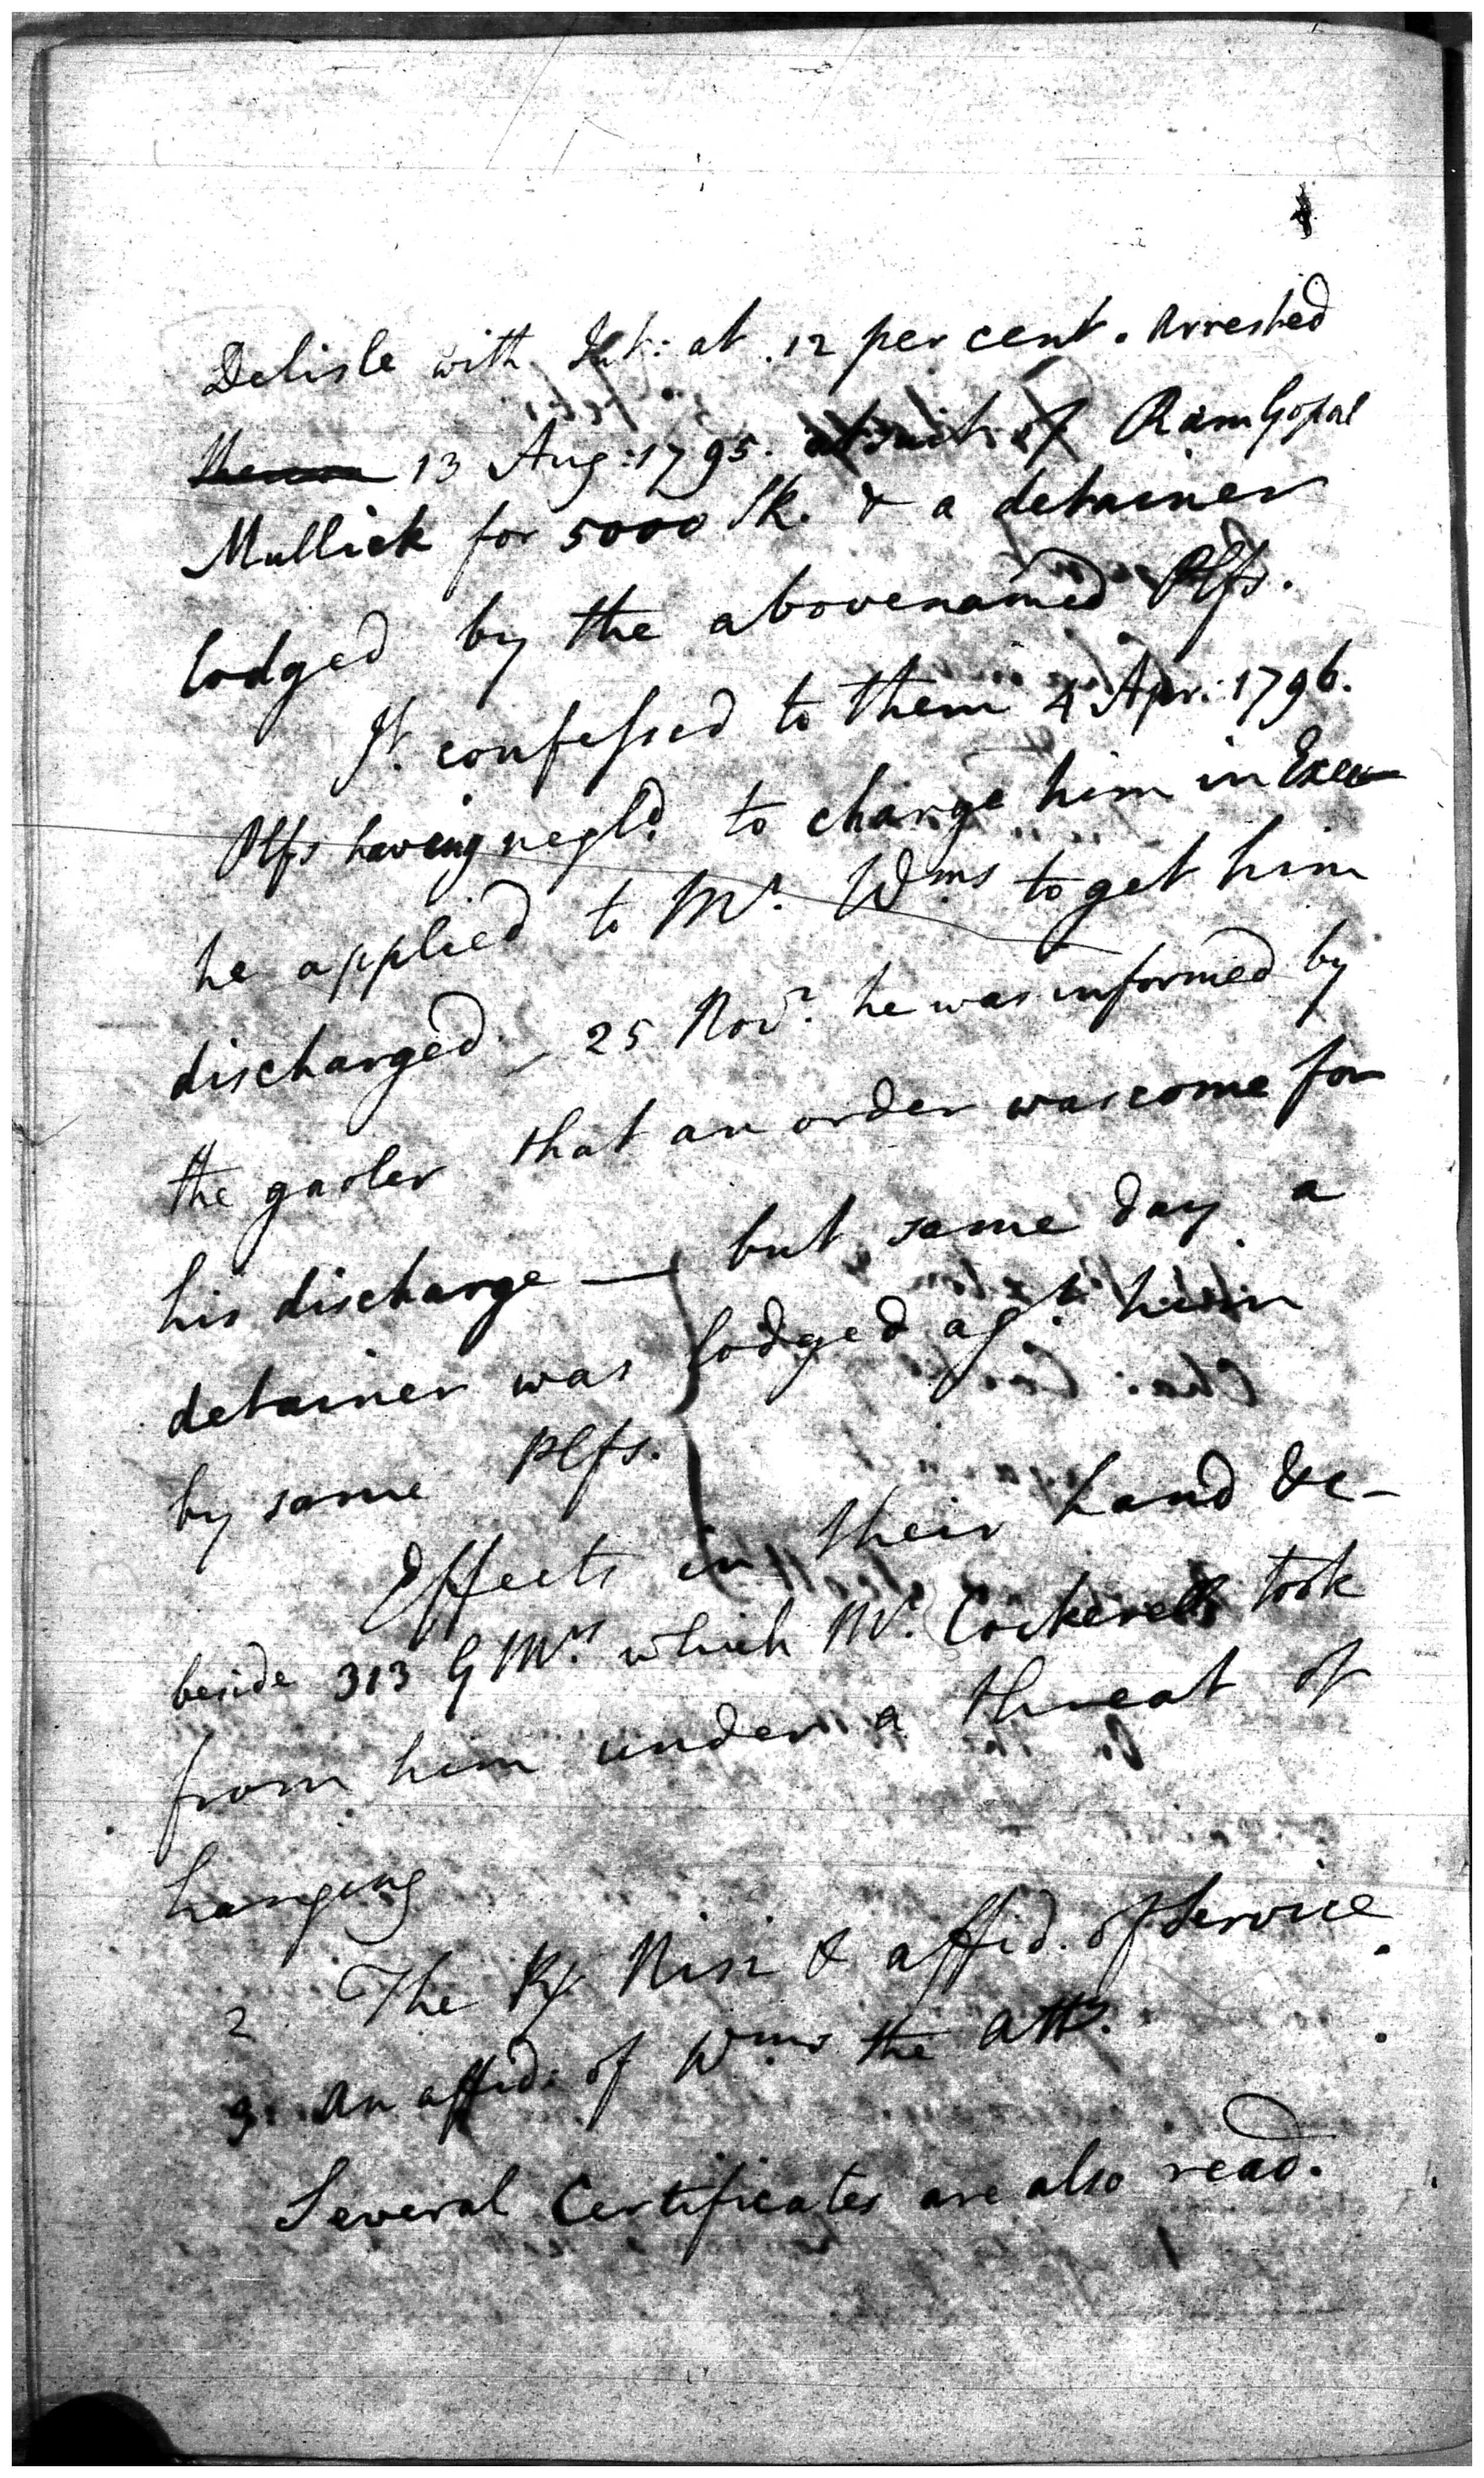 Delisle with Int: at 12 per cent. Arrested
13 Aug: 1795. at suit of Ram Gopal
Mullick for 5000 SR. & a detainer
lodged by the abovenamed Plfs.
Jt. confessed to them 4 Apr: 1796.
Plfs having negld. to charge him in Exec
he applied to Mr. Wms to get him
discharged. 25 Novr. he was informed by
the gaoler that an order was come for
his discharge — but same day a
detainer was lodged agt. him
by same Plfs.
Effects in their hand &c-
beside 313 G Mrs which Mr. Cockerell took
from him under a threat of
hanging
2 The Rx Nisi & affid. of Service
3. An affid: of Wms the atty.
Several Certificates are also read.